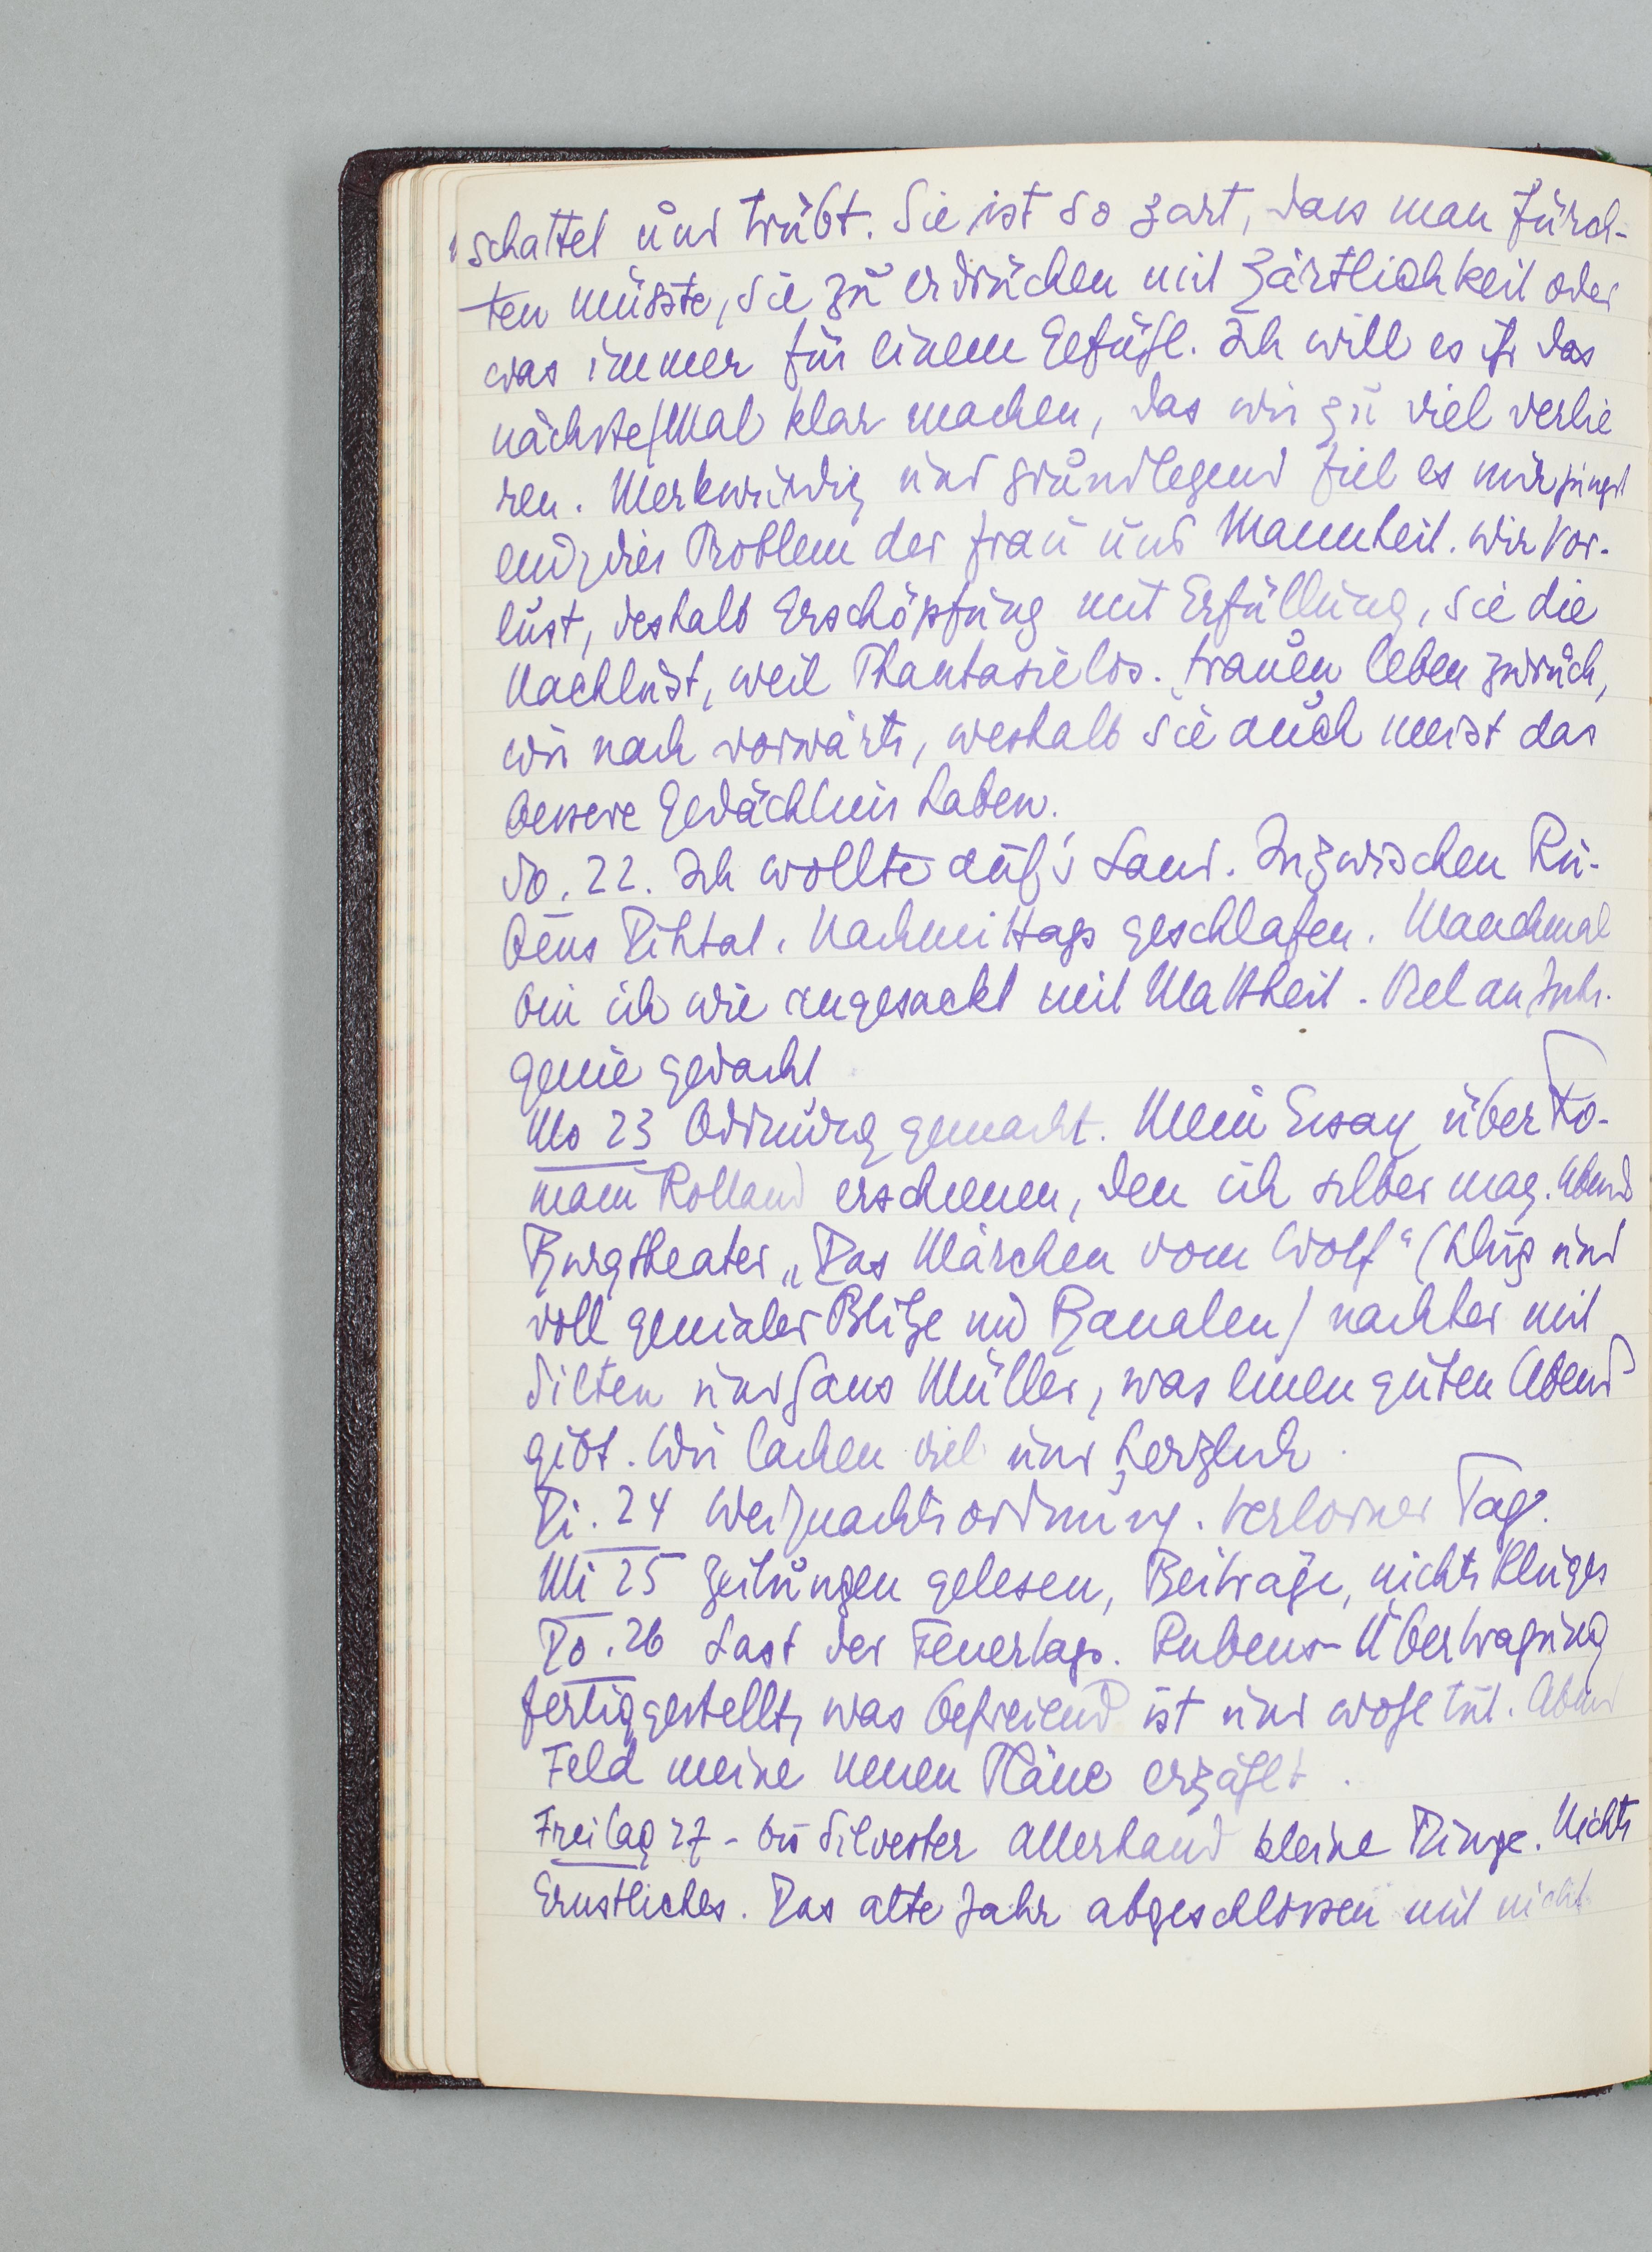 schattet und trübt. Sie ist so zart, dass man fürch-
ten müsste, sie zu erdrücken mit Zärtlichkeit oder
was immer für einem Gefühl. Ich will es ihr das
nächste Mal klar machen, das wir zu viel verlie
ren. Merkwürdig und grundlegend fiel es mir jüngst
ein, dies Problem der Frau und Mannheit. Wir Vor-
lust, deshalb Erschöpfung mit Erfüllung, sie die
Nachlust, weil Phantasielos. Frauen leben zurück,
wir nach vorwärts, weshalb sie auch meist das
bessere Gedächtnis haben.
So. 22. Ich wollte auf's Land. Inzwischen Ru-
bens Diktat. Nachmittags geschlafen. Manchmal
bin ich wie angesackt mit Mattheit. Viel an
genie gedacht
Mo 23 Ordnung gemacht. Mein Essay über Ro-
main Rolland erschienen, den ich selber mag. Abend
Burgtheater „Das Märchen vom Wolf“ (klug und
voll genialer Blitze und Banalen) nachher mit
Silten und Hans Müller, was einen guten Abend
gibt. Wir lachen viel und herzlich.
Di. 24 Weihnachtsordnung. Verlorner Tag.
Mi 25 Zeitungen gelesen, Beiträge, nichts Kluges
Do. 26 Last der Feuertags. Rubens-Übertragung
fertiggestellt, was befreiend ist und wohl tut. Abend
Feld meine neuen Pläne erzählt.
Freitag 27 - bis Silvester Allerhand kleine Dinge. Nichts
Ernstliches. Das alte Jahr abgeschlossen mit nicht